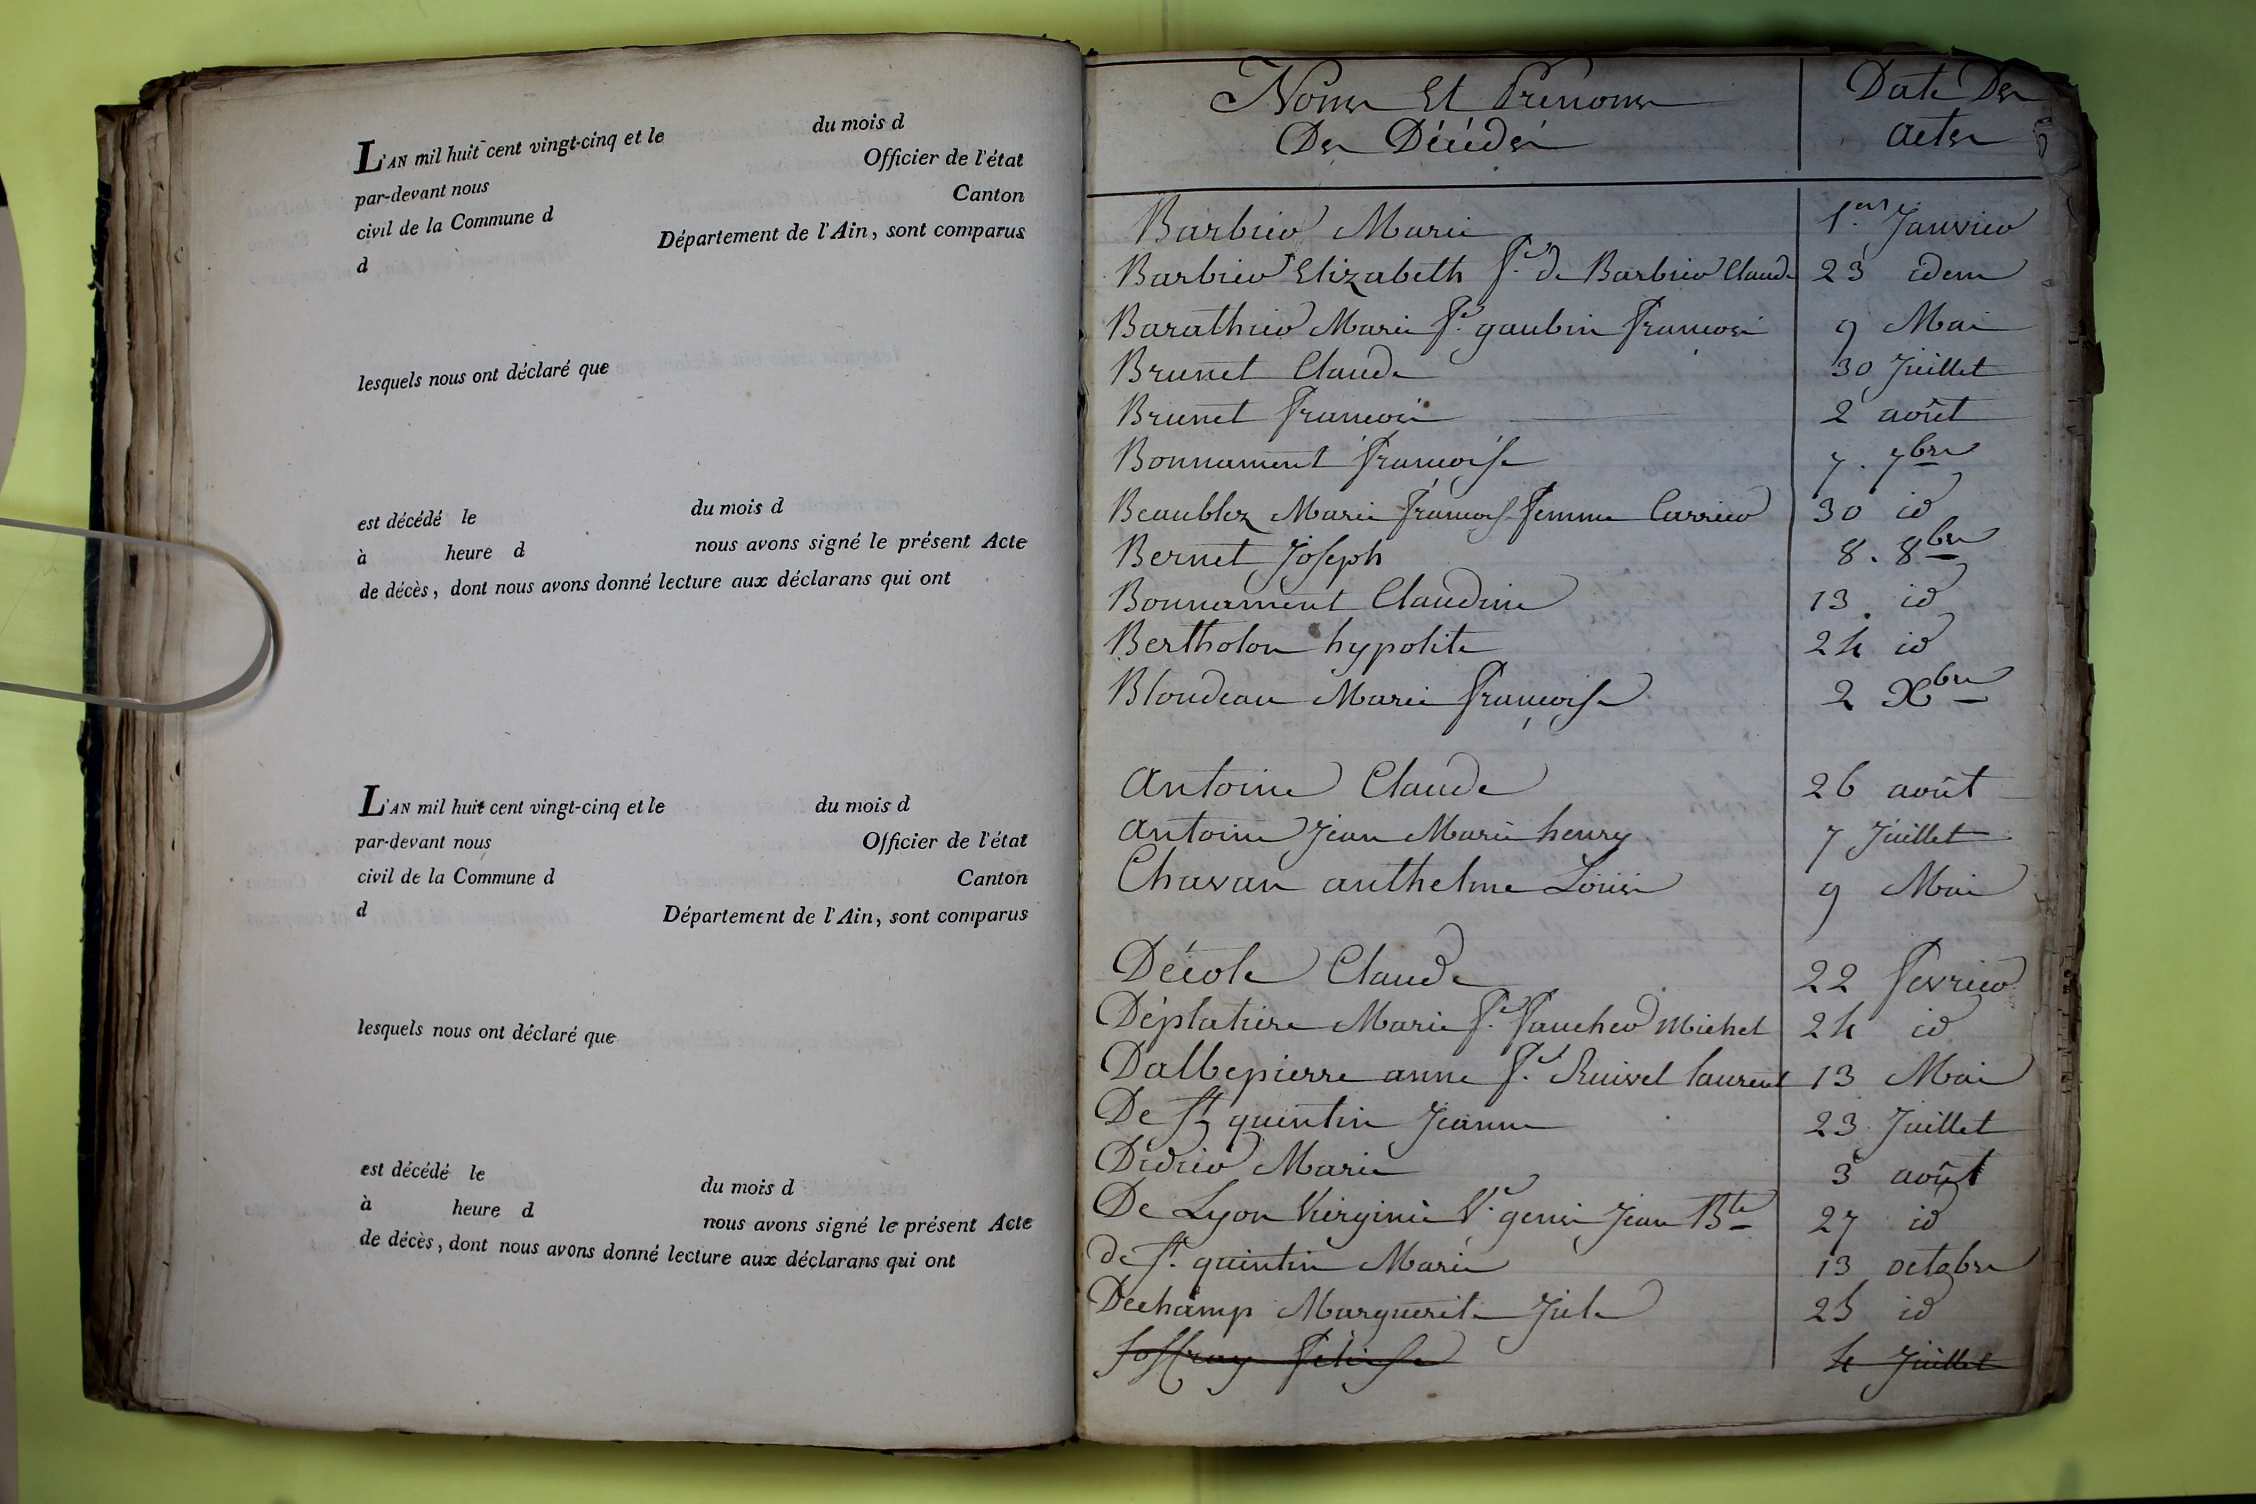 L'AN mil huit cent vingt-cinq et le du mois d
par-devant nous Officier de l'état
civil de la Commune d Canton
d Département de l'Ain, sont comparus
lesquels nous ont déclaré que
est décédé le du mois d
à heure d nous avons signé le présent Acte
de décès, dont nous avons donné lecture aux déclarans qui ont
L'AN mil huit cent vingt-cinq et le du mois d
par-devant nous Officier de l'état
civil de la Commune d Canton
d Département de l'Ain, sont comparus
lesquels nous ont déclaré que
est décédé le du mois d
à heure d nous avons signé le présent Acte
de décès, dont nous avons donné lecture aux déclarans qui ont
Noms Et Prénoms Date Des
Des Décédés actes
Barbier Marie 1.er Janvier
Barbier Elizabeth f.e de Barbier Claude 23 idem
Barathier Marie f.e gaubin francois 9 Mai
Brunet Claude 30 Juillet
Brunet francois 2 août
Bonnament francoise 7. 7bre
Beaublez Marie francois. femme Carrier 30 id
Bernet Joseph 8. 8bre
Bonnament Claudine 13 id
Bertholon hypolite 24 id
Blondeau Marie françoise 2 Xbre
antoine Claude 26 août
antoine Jean Marie henry 7 Juillet
Chavan anthelme Louis 9 Mai
Décole Claude 22 fevrier
Déplatière Marie f.e faucher Michel 24 id
Dalbepierre anne f.e Ruivet laurent 13 Mai
De St quentin Jeanne 23 Juillet
Didier Marie 3 août
De Lyon Virginie V.e genis Jean Bte 27 id
de St. quintin Marie 13 octobre
Dechamp Marguerite Jule 25 id
Joffray félise 4 Juillet